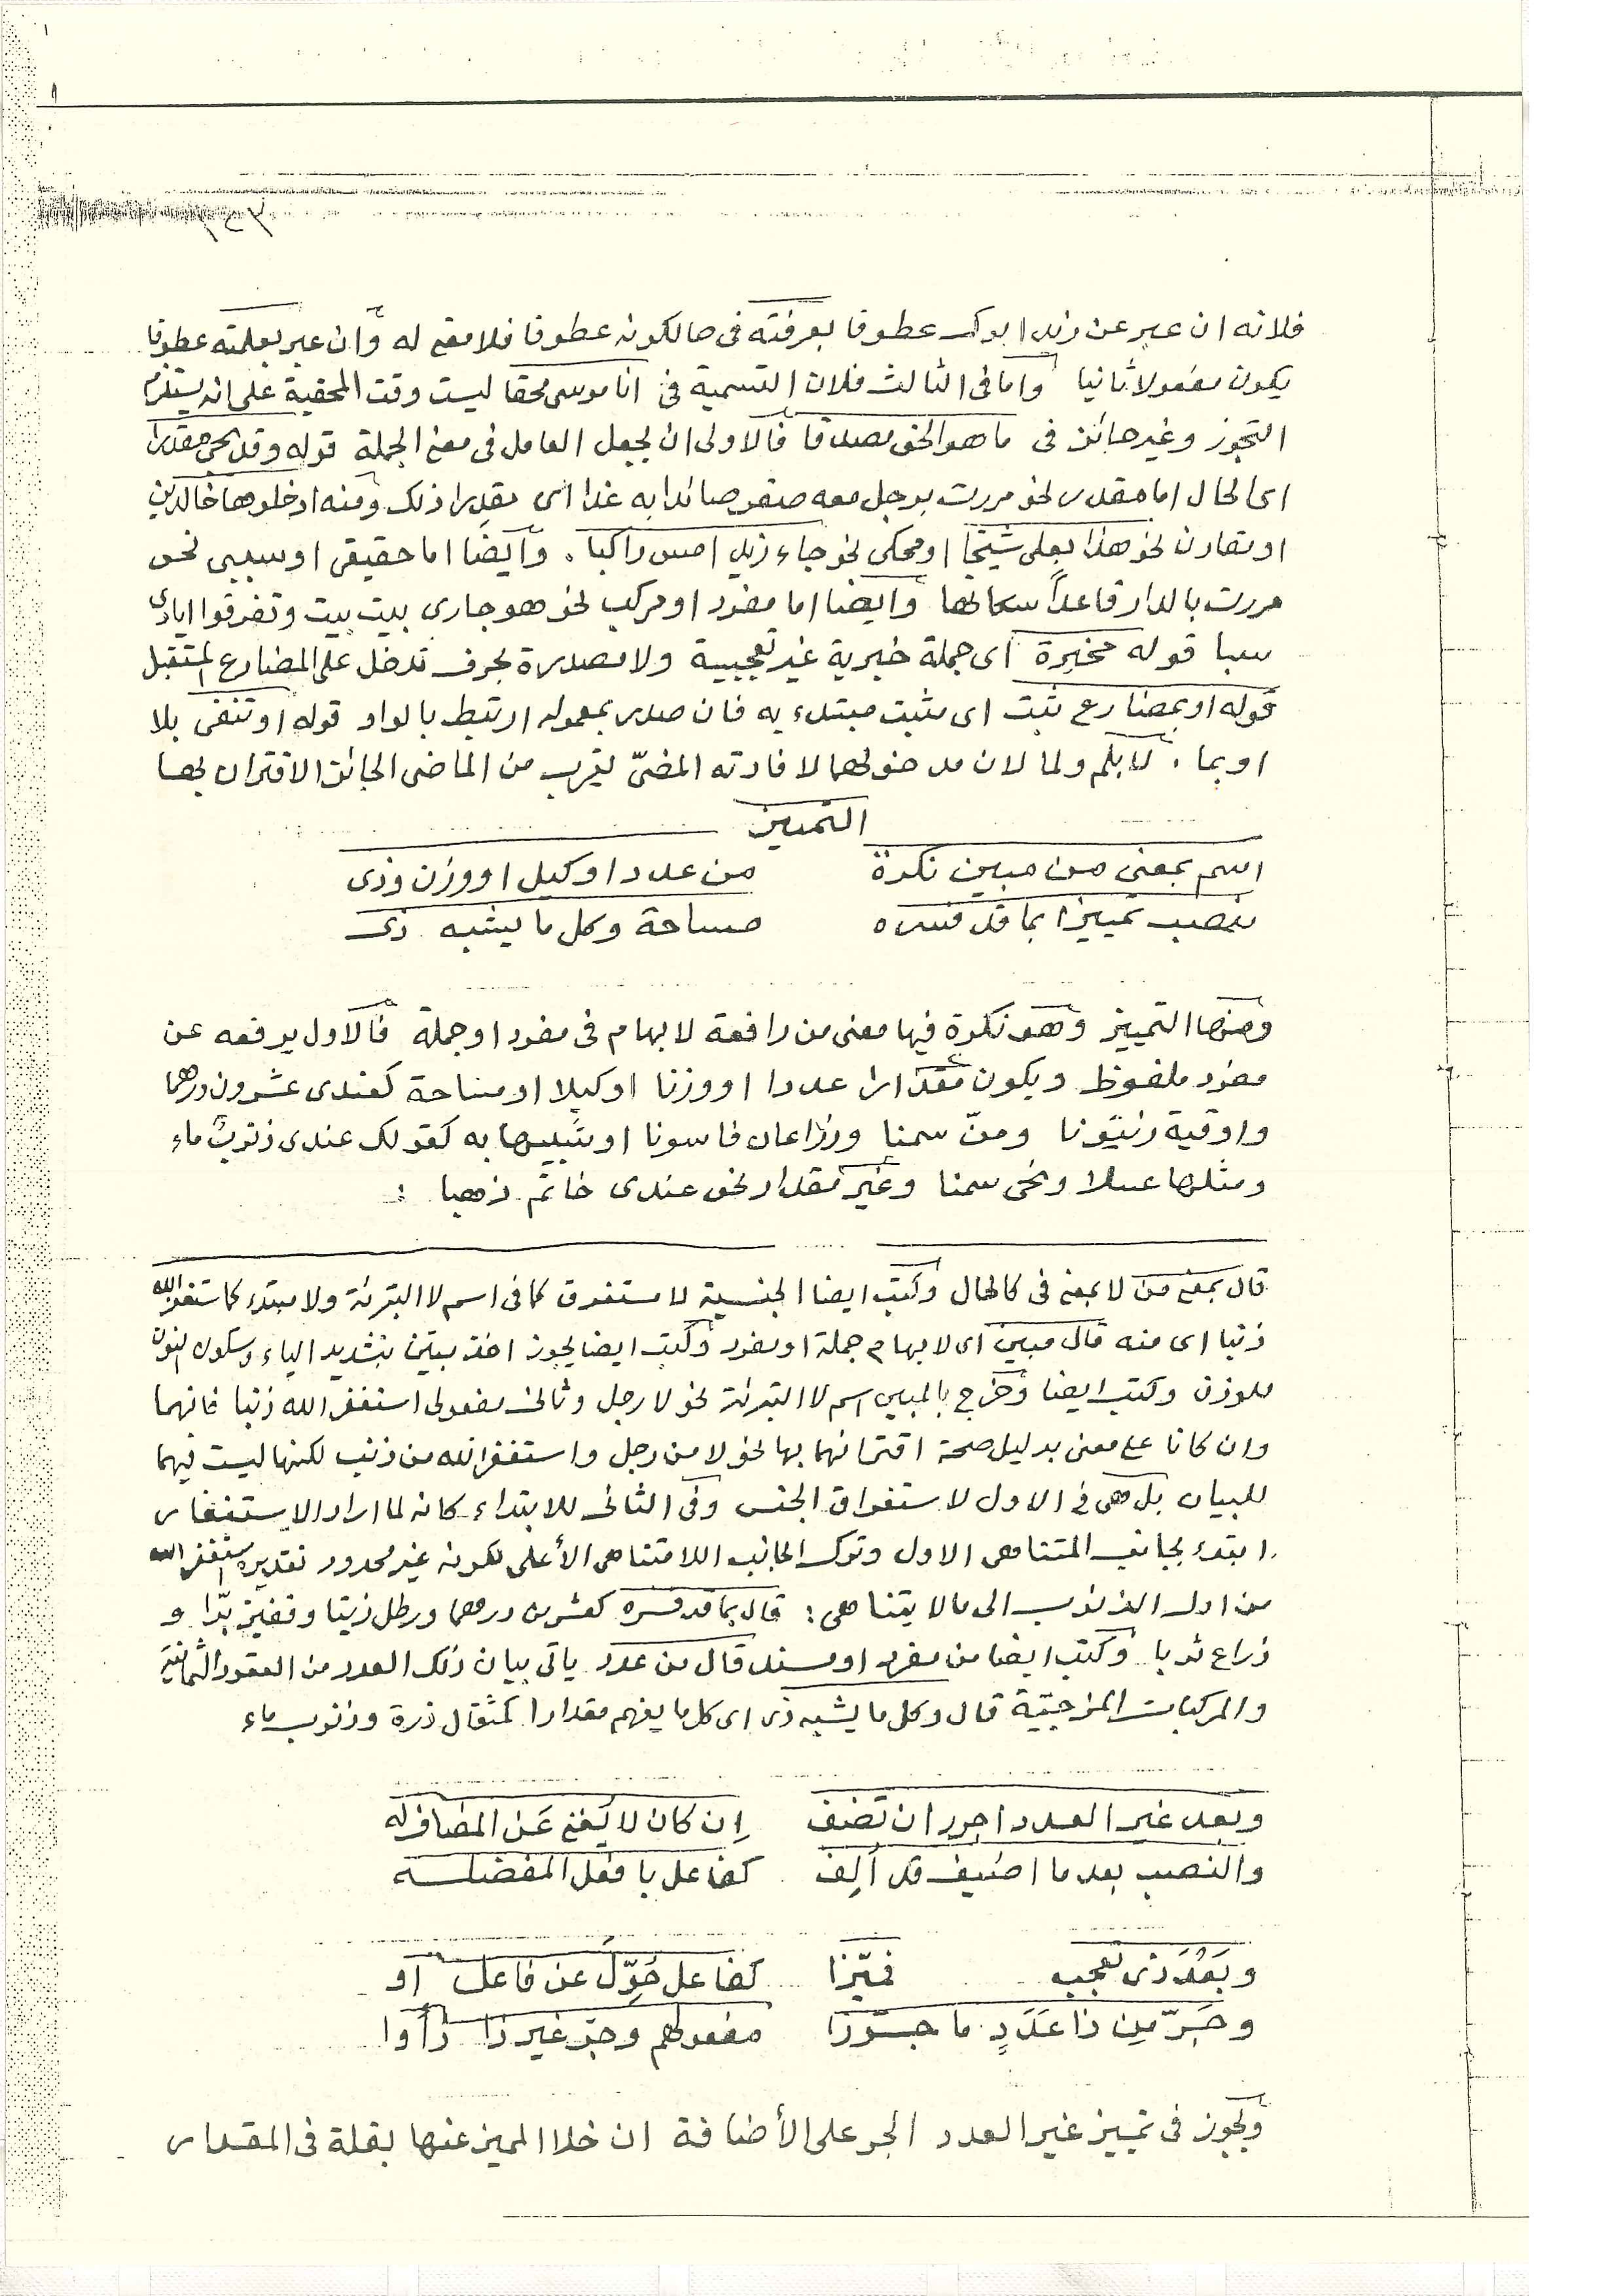 فلانه ان عبر عن زيد ابوك عطوفا بعرفته فى حالكونه عطوفا فلا معنى له وان عبر بعلمته عطوفا
يكون مفعولا ثانيا واما فى الثالث فلان التسمية فى انا موسى محقا ليست وقت المحقية على انه يستلزم
التجوز وغير جائز فى ما هو الحق مصدقا فالاولى ان يجعل العامل فى معنى الجملة قوله وقد يجى مقدرا
اى الحال اما مقدر نحو مررت برجل معه صقر صائدا به غدا اى مقدرا ذلك ومنه ادخلوها خالدين
او مقارن نحو هذا بعلى شيخا او محكى نحو جاء زيد امس راكبا . وايضا اما حقيقى او سببى نحو
مررت بالدار قاعداً سكانها وايضا اما مفرد او مركب نحو هو جارى بيت بيت وتفرقوا ايادى
سبا قوله مخبرة اى جملة خبرية غير تعجيبية ولا مصدرة بحرف تدخل على المضارع المستقبل
قوله او بمضارع ثبت اى مثبت مبتدء به فان صدر بمعموله ارتبط بالواو قوله او تنفى بلا
او بما . لا بلم ولما لان مدخولهما لافادته المضىّ يقرب من الماضى الجائز الاقتران بها
التمييز
اسم بمعنى من مبين نكرة من عدد او كيل او وزن وذى
ينصب تمييزا بما قد فسره مساحة وكل ما يشبه ذى
ومنها التمييز وهو نكرة فيها معنى من رافعة لابهام فى مفرد او جملة فالاول يرفعه عن
مفرد ملفوظ ويكون مقدارا عددا او وزنا او كيلا او مساحة كعندى عشرون درهما
واوقية زيتونا ومنّ سمنا وذراعان فاسونا او شبيها به كقولك عندى ذنوب ماء
ومثلها عسلا ونحى سمنا وغير مقدار نحو عندى خاتم ذهبا :
قال بمعنى من لا بمعنى فى كالحال وكتب ايضا الجنسية لا ستغرق كما فى اسم لا التبرئة ولا مبتدء كما ستغفر الله
ذنبا اى منه قال مبين اى لابهام جملة او مفرد وكتب ايضا يجوز اخذ مبين بتشديد الياء وسكون النون
للوزن وكتب ايضا وخرج بالمبين اسم لا التبرئة نحو لا رجل وثانى مفعولى استغفر الله ذنبا فانهما
وان كانا على معنى بدليل صحة اقترانهما بها نحو لا من رجل واستغفر الله من ذنب لكنها ليست فيهما
للبيان بل هى فى الاول لاستغراق الجنس وفى الثانى للابتداء كانه لما اراد الاستغفار
ابتدء بجانب المتناهى الاول وترك الجانب اللامتناهى الأعلى لكونه غير محدود تقديره استغفر الله
من اول الذنوب الى مالا يتناهى : قال بما قد فسره كعشرين درهما ورطل زيتا وقفيز برّا و
ذراع ثوبا وكتب ايضا من مفرد او مسند قال من عدد ياتى بيان ذلك العدد من العقود الثمانية
والمركبات المزجيّة قال وكل ما يشبه ذى اى كل ما يفهم مقدارا كمثقال ذرة وذنوب ماء
وبعد غير العدد اجرر ان تضف اِن كان لا يُغنى عَن المضاف له
والنصب بعد ما اضيف قد اُلِف كفاعل بافعل المفضله
وبَعْدَ ذى تعجب ميّزا كفاعل حُوِّلَ عن فاعل او
وجَرّ مِن ذا عَدَدٍ ما جوّزا مفعولهم وجرّ غير ذا رأوا
ويجوز فى تمييز غير العدد الجر على الأضافة ان خلا المميز عنها بقلة فى المقدار